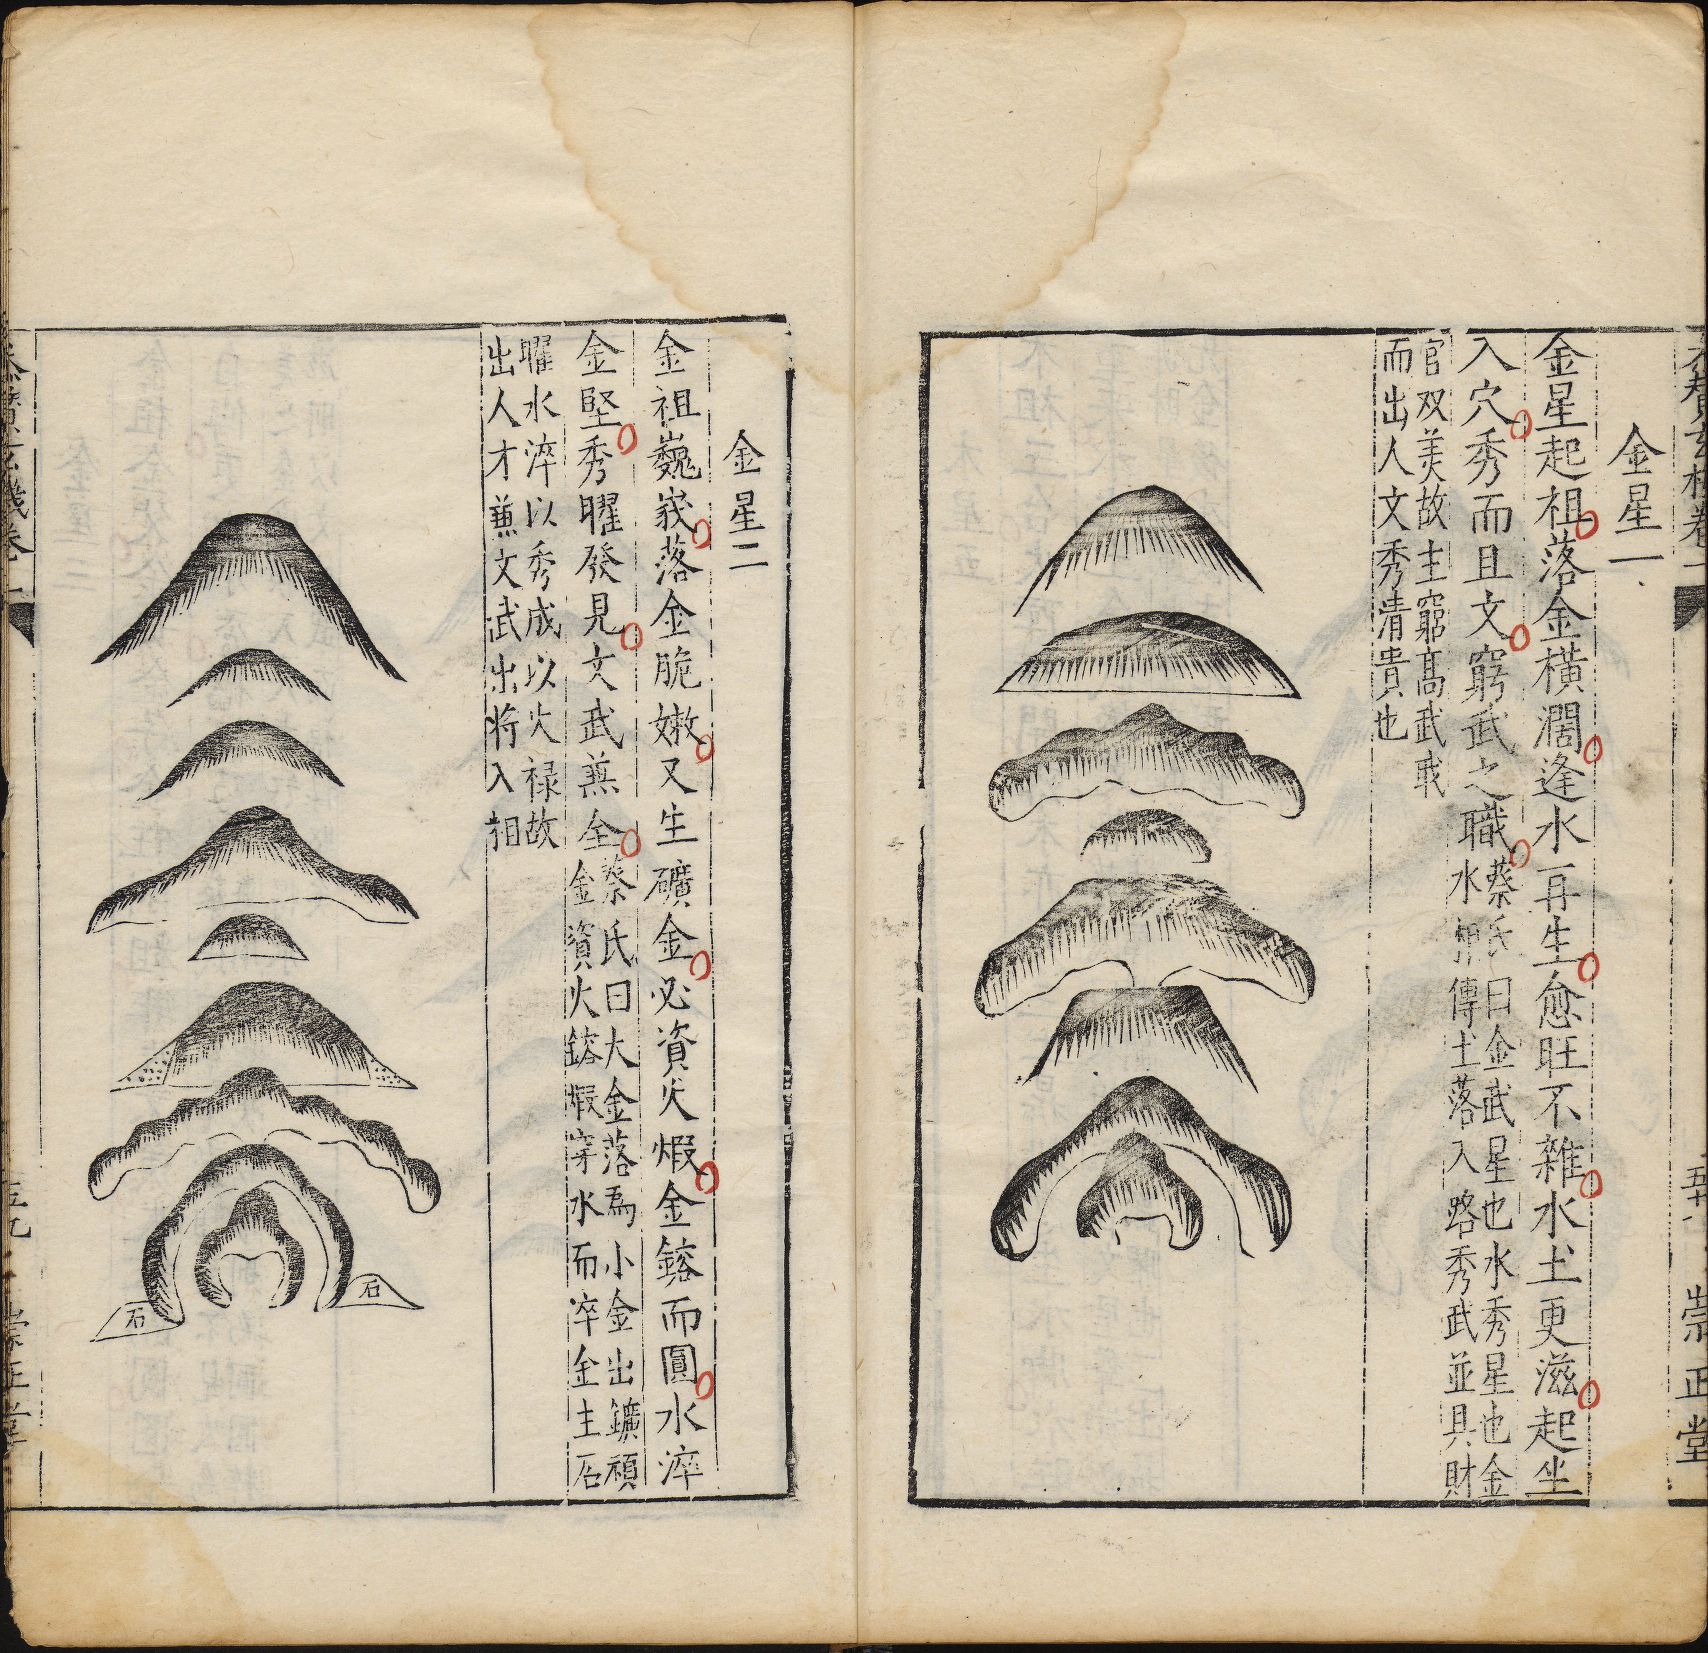 金星一
金星起祖落金橫濶逢水再生愈旺不雜水土更滋起坐
入穴秀而且文窮武之職
蔡氏曰金武星也水秀星也金
水相傳土落入路秀武並具財
官双美故主窮髙武職
而出人文秀清貴也
崇正堂
金星二
金祖巍峩落金脆嫩又生礦金必資火煆金鎔而圓水淬
金堅秀曜發見文武兼全
蔡氏曰大金落為小金出鑛頑
金資火鎔煆穿水而淬金主石
曜水淬以秀成以火禄故
出人才兼文武出将入相
石
石